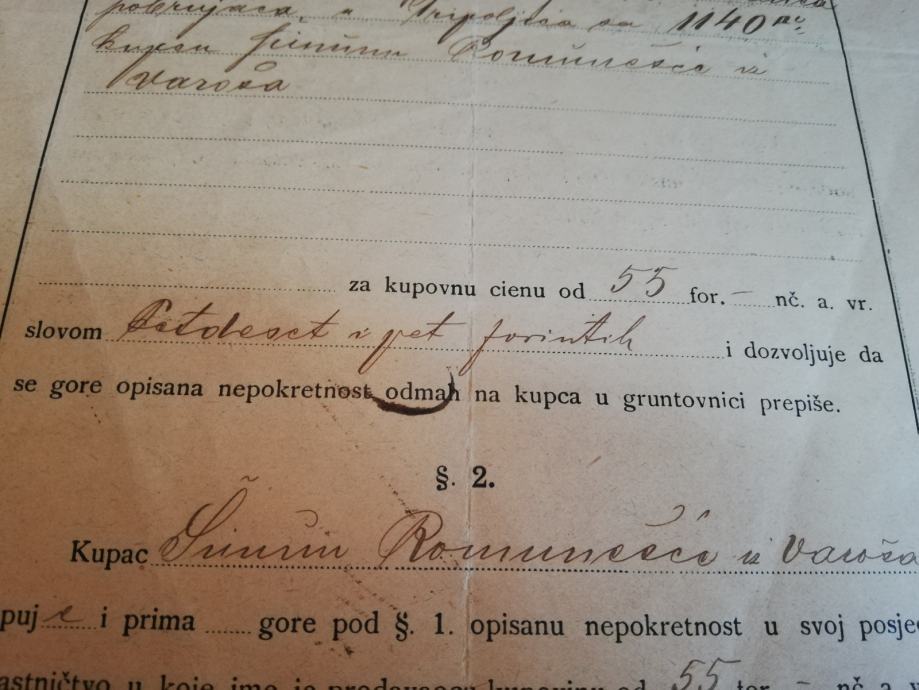 pobrujaca, u Tripoljica sa 1140
kupcu Šimunu Romunešić iz
Varoša
za kupovnu cienu od 55 for. – nč. a. vr.
slovom Petdeset i pet forintih i dozvoljuje da
se gore opisana nepokretnost odmah na kupca u gruntovnici prepiše.
§. 2.
Kupac Šimun Romunešić iz Varoša
puje i prima gore pod §. 1. opisanu nepokretnost u svoj posje
astničtvo u koje ime je prodavaocu kupovinu od 55 for. – nč. a v